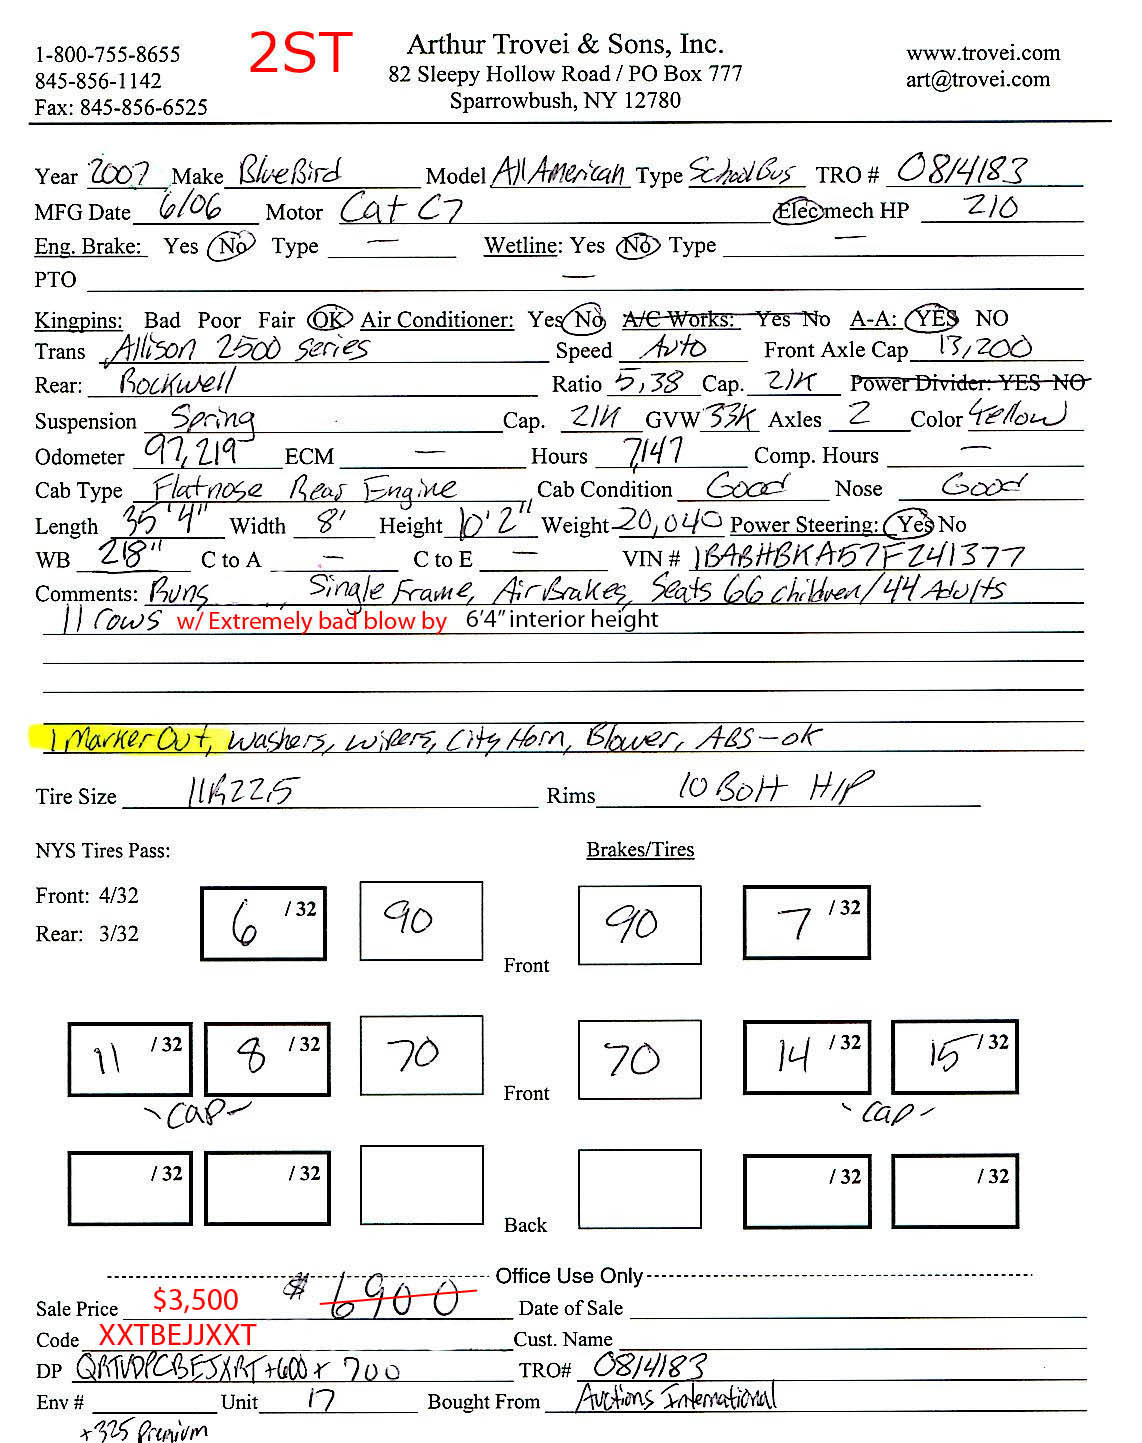 1-800-755-8655
845-856-1142
Fax: 845-856-6525
2ST
Arthur Trovei & Sons, Inc.
82 Sleepy Hollow Road / PO Box 777
Sparrowbush, NY 12780
www.trovei.com
art@trovei.com
Year 2007 Make BlueBird Model All American Type School Bus TRO # 0814183
MFG Date 6/06 Motor Cat C7 Elec mech HP 210
Eng. Brake: Yes No Type — Wetline: Yes No Type —
PTO —
Kingpins: Bad Poor Fair OK Air Conditioner: Yes No A/C Works: Yes No A-A: YES NO
Trans Allison 2500 series Speed Auto Front Axle Cap 13,200
Rear: Rockwell Ratio 5.38 Cap. 21K Power Divider: YES NO
Suspension Spring Cap. 21K GVW 33K Axles 2 Color Yellow
Odometer 97,219 ECM — Hours 7,147 Comp. Hours —
Cab Type Flatnose Rear Engine Cab Condition Good Nose Good
Length 35'4" Width 8' Height 10'2" Weight 20,040 Power Steering: Yes No
WB 218" C to A — C to E — VIN # 1BABHBKA57F241377
Comments: Runs, Single Frame, Air Brakes, Seats 66 children/44 Adults
11 rows w/ Extremely bad blow by 6'4" interior height
1 Marker Out, Washers, Wipers, City Horn, Blower, ABS-OK
Tire Size 11R22.5 Rims 10 Bolt H/P
NYS Tires Pass: Brakes/Tires
Front: 4/32
Rear: 3/32
6 /32 90 90 7 /32
Front
11 /32 8 /32 70 70 14 /32 15 /32
Front
-CAP- -CAP-
/32 /32 /32 /32
Back
Office Use Only
Sale Price $3,500 $6900 Date of Sale
Code XXTBEJJXXT Cust. Name
DP +600+700 TRO# 0814183
Env # Unit 17 Bought From Auctions International
+325 Premium